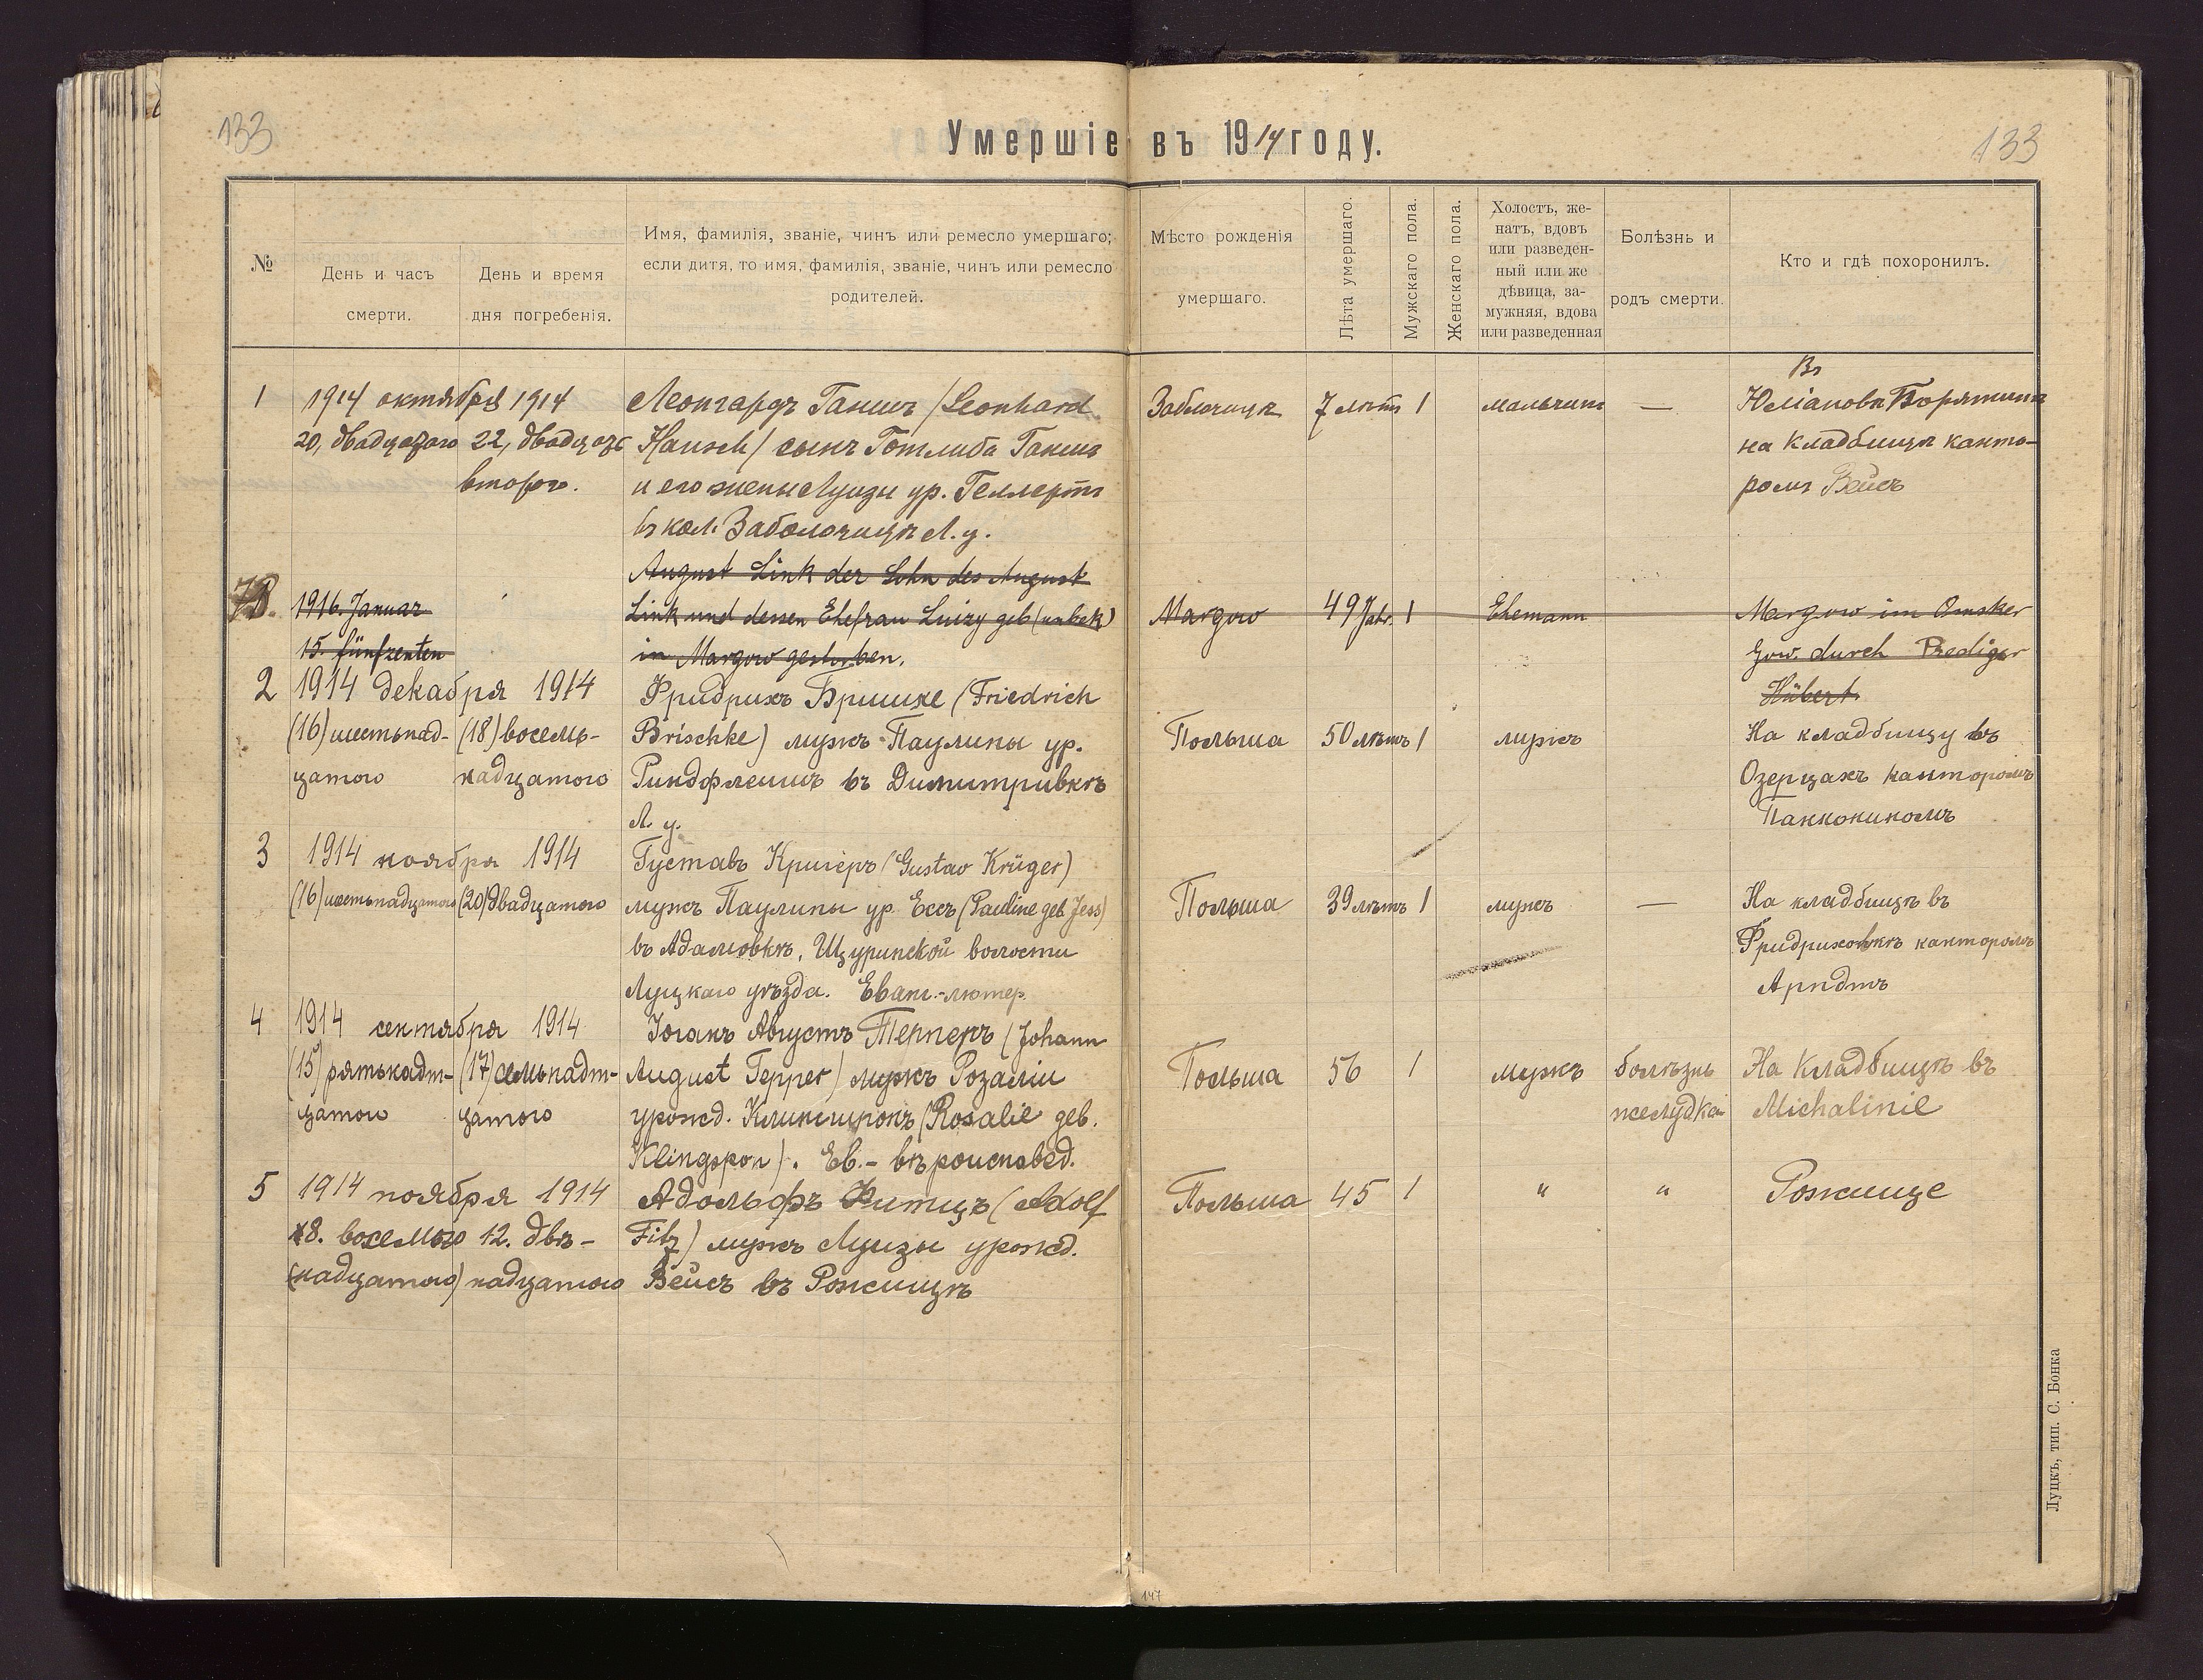 133
Умершіе въ 1914 году.
133
№
День и часъ
смерти.
День и время
дня погребенія.
Имя, фамилія, званіе, чинъ или ремесло умершаго;
если дитя, то имя, фамилія, званіе, чинъ или ремесло
родителей.
Мѣсто рожденія
умершаго.
Лѣта умершаго.
Мужскаго пола.
Женскаго пола.
Холостъ, же-
натъ, вдовъ
или разведен-
ный или же
дѣвица, за-
мужняя, вдова
или разведенная
Болѣзнь и
родъ смерти.
Кто и гдѣ похоронилъ.
1
1914 октября 1914
20, двадцатого
22, двадцать
второго.
Леонгардъ Ганшъ (Leonhard
Hansch) сынъ Готлиба Ганшъ
и его жены Луизы ур. Геллертъ
въ кол. Заболочицѣ Л. у.
7 лѣтъ
1
мальчикъ
—
Въ
Юліановкѣ
на кладбищѣ канто-
ромъ Вейсъ
1916. Januar
15. fünfzenten
August Link der Sohn des August
Link und dessen Ehefrau Luizy geb
in Margow gestorben.
Margow
49 Jahr.
1
Ehemann
Margow im Omsker
Gow. durch Prediger
Hübert
2
1914 декабря 1914
(16) шестьнад-
цатого
(18) восемь-
надцатого
Фридрихъ Бришке (Friedrich
Brischke) мужъ Паулины ур.
Риндфлейшъ въ Димитривкѣ
Л. у.
Польша
50 лѣтъ
1
мужъ
На кладбищу въ
Озерцахъ канторомъ
Панконикомъ
3
1914 ноября 1914
(16) шестьнадцатого
(20) двадцатого
Густавъ Кригеръ (Gustav Krüger)
мужъ Паулины ур. Ессъ (Pauline geb Jess)
въ Адамовкѣ, Щуринской волости
Луцкаго уѣзда. Еванг.-лютер.
Польша
39 лѣтъ
1
мужъ
—
На кладбищѣ въ
Фридриховкѣ канторомъ
Арндтъ
4
1914 сентября 1914
(15) пятьнадт-
цатого
(17) семьнадт-
цатого
Іоганъ Августъ Тепперъ (Johann
August Tepper) мужъ Розаліи
урожд. Клингшпонъ (Rosalie geb.
Klingspon). Ев.- вѣроисповед.
Польша
56
1
мужъ
болѣзнь
желудка
На кладбищѣ въ
Michalinie
5
1914 ноября 1914
8. восемого
(надцатого)
12. двѣ-
надцатого
Адольфъ Фитцъ (Adolf
Fitz) мужъ Луизы урожд.
Вейсъ въ Рожищѣ
Польша
45
1
"
"
Рожище
Луцкъ, тип. С. Бонка
147